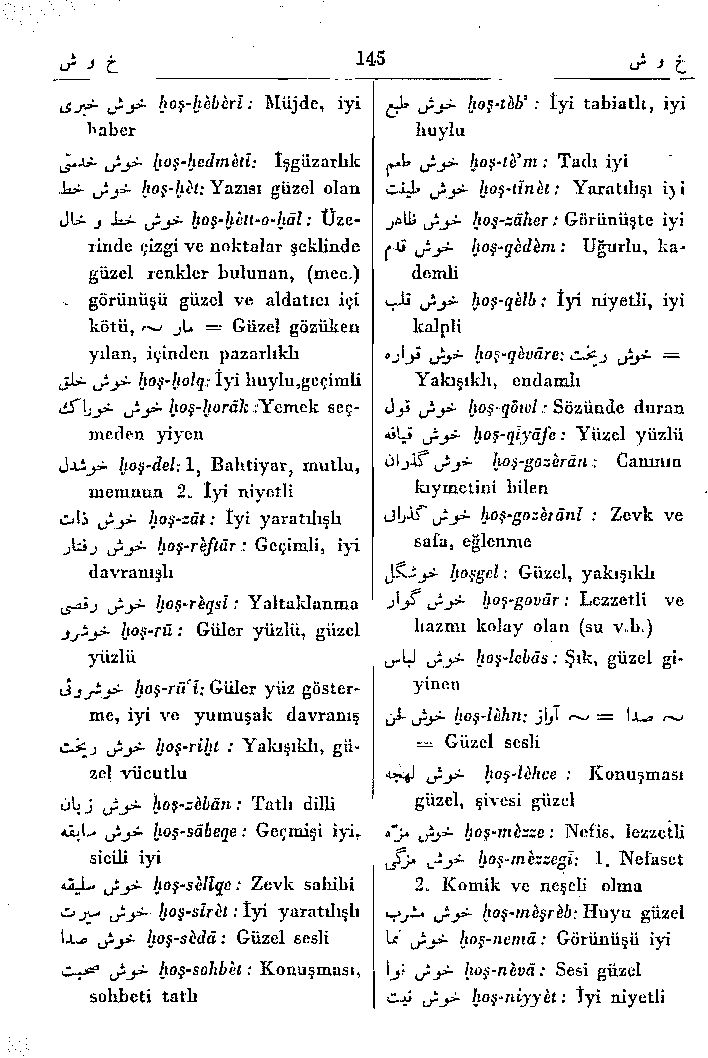 خ و ش 145 خ و ش
خوش خبری ḫoş-ḫèbèrī: Müjde, iyi
haber
خوش خدمتی ḫoş-ḫedmètī: İşgüzarlık
خوش خط ḫoş-ḫèt: Yazısı güzel olan
خوش خط و خال ḫoş-ḫètt-o-ḫāl: Üze-
rinde çizgi ve noktalar şeklinde
güzel renkler bulunan, (mec.)
görünüşü güzel ve aldatıcı içi
kötü, مار ~ = Güzel gözüken
yılan, içinden pazarlıklı
خوش خلق ḫoş-ḫolq: İyi huylu,geçimli
خوش خوراك ḫoş-ḫorāk: Yemek seç-
meden yiyen
خوشدل ḫoş-del: 1, Bahtiyar, mutlu,
memnun 2. İyi niyetli
خوش ذات ḫoş-zāt: İyi yaratılışlı
خوش رفتار ḫoş-rèftār: Geçimli, iyi
davranışlı
خوش رقصی ḫoş-rèqsī: Yaltaklanma
خوشرو ḫoş-rū: Güler yüzlü, güzel
yüzlü
خوشروئی ḫoş-rū'ī: Güler yüz göster-
me, iyi ve yumuşak davranış
خوش ریخت ḫoş-riḫt : Yakışıklı, gü-
zel vücutlu
خوش زبان ḫoş-zèbān: Tatlı dilli
خوش سابقه ḫoş-sābeqe: Geçmişi iyi,
sicili iyi
خوش سلیقه ḫoş-sèlīqe: Zevk sahibi
خوش سیرت ḫoş-sīrèt: İyi yaratılışlı
خوش صدا ḫoş-sèdā: Güzel sesli
خوش صحبت ḫoş-sohbèt: Konuşması,
sohbeti tatlı
خوش طبع ḫoş-tèb' : İyi tabiatlı, iyi
huylu
خوش طعم ḫoş-tè'm : Tadı iyi
خوش طینت ḫoş-tīnèt : Yaratılışı iyi
خوش ظاهر ḫoş-zāher: Görünüşte iyi
خوش قدم ḫoş-qèdèm: Uğurlu, ka-
demli
خوش قلب ḫoş-qèlb: İyi niyetli, iyi
kalpli
خوش قواره ḫoş-qèvāre: خوش ریخت =
Yakışıklı, endamlı
خوش قول ḫoş-qōwl: Sözünde duran
خوش قیافه ḫoş-qīyāfe: Yüzel yüzlü
خوش گذران ḫoş-gozèrān: Canının
kıymetini bilen
خوش گذرانی ḫoş-gozèrānī : Zevk ve
safa, eğlenme
خوشگل ḫoşgel: Güzel, yakışıklı
خوش گوار ḫoş-govār: Lezzetli ve
hazmı kolay olan (su v.b.)
خوش لباس ḫoş-lebās: Şık, güzel gi-
yinen
خوش لحن ḫoş-lèhn: آواز ~ = صدا ~
= Güzel sesli
خوش لهجه ḫoş-lèhce : Konuşması
güzel, şivesi güzel
خوش مزه ḫoş-mèzze: Nefis, lezzetli
خوش مزگی ḫoş-mèzzegī: 1. Nefaset
2. Komik ve neşeli olma
خوش مشرب ḫoş-mèşrèb: Huyu güzel
خوش نما ḫoş-nemā: Görünüşü iyi
خوش نوا ḫoş-nèvā: Sesi güzel
خوش نیت ḫoş-niyyèt: İyi niyetli